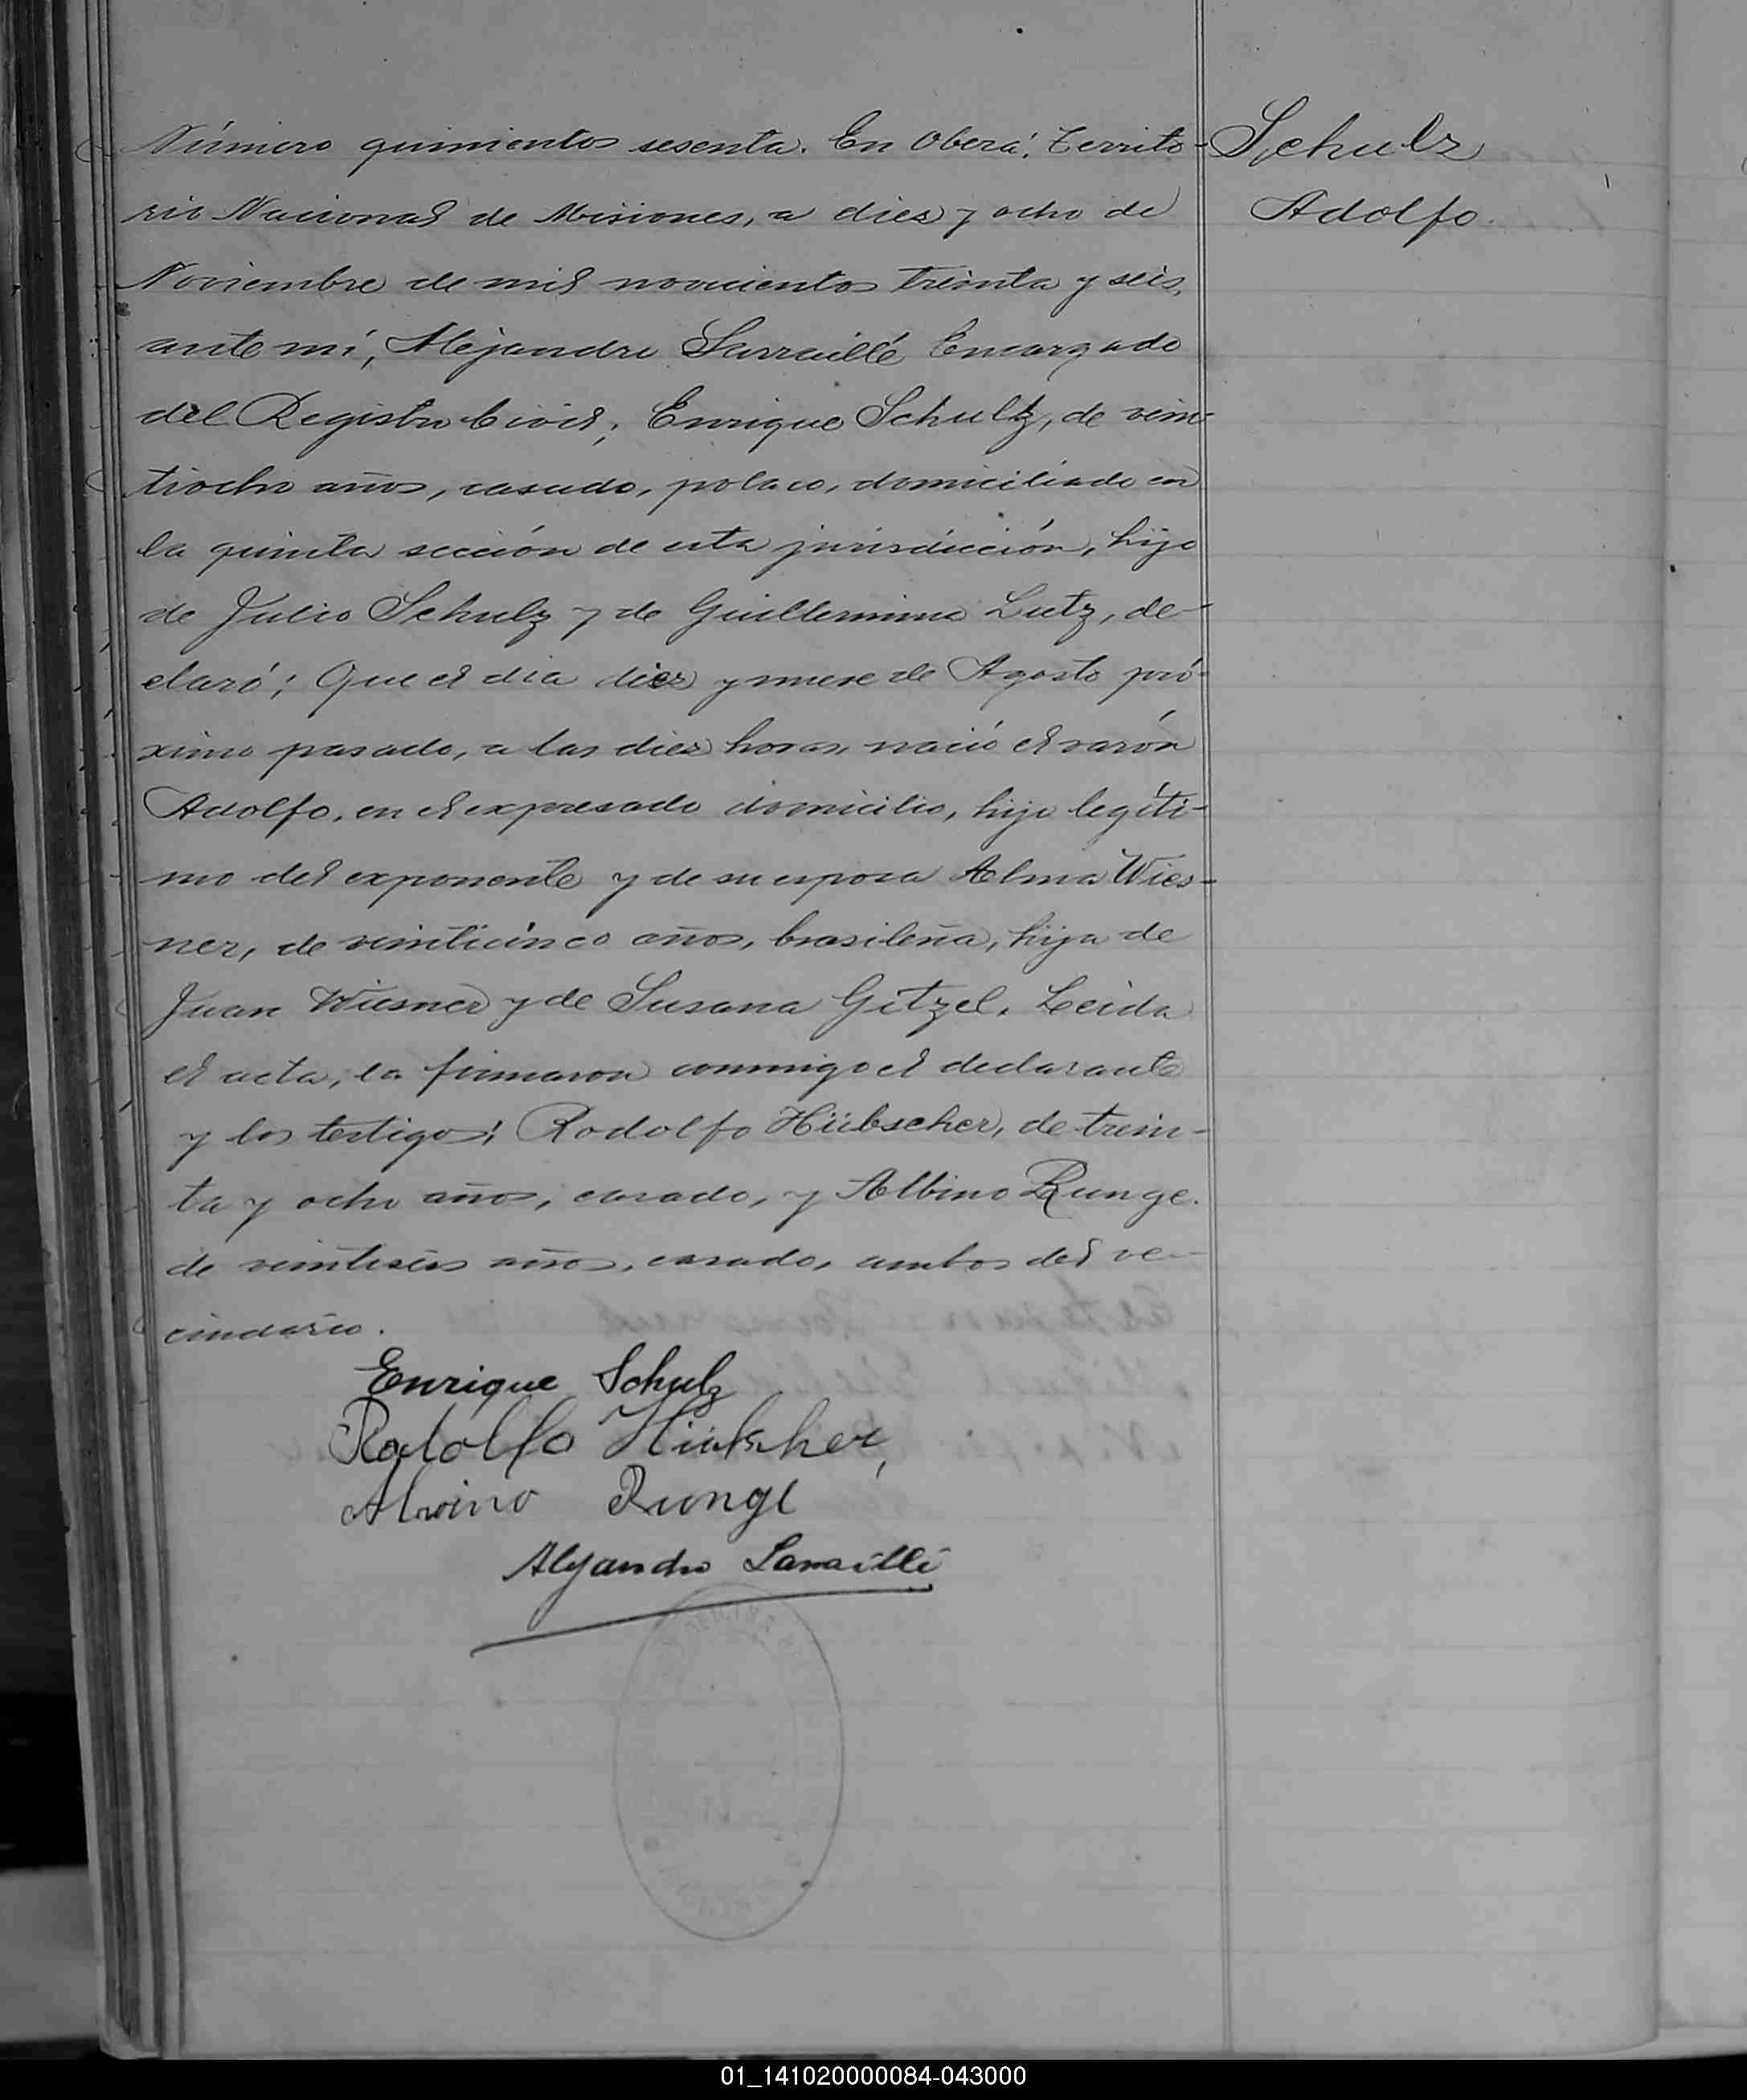 Número quinientos sesenta. En Oberá, Territo-
rio Nacional de Misiones, a diez y ocho de
Noviembre de mil novecientos treinta y seis,
ante mí, Alejandro Sarraillé Encargado
del Registro Civil; Enrique Schultz, de vein-
tiocho años, casado, polaco, domiciliado en
la quinta sección de esta jurisdicción, hijo
de Julio Schulz y de Guillermina Lutz, de-
claró: Que el día diez y nueve de Agosto pró-
ximo pasado, a las diez horas, nació el varón
Adolfo, en el expresado domicilio, hijo legíti-
mo del exponente y de su esposa Alma Wies-
ner, de veinticinco años, brasileña, hija de
Juan Wiesner y de Susana Gitzel. Leida
el acta, la firmaron conmigo el declarante
y los testigos: Rodolfo Hübscher, de trein-
ta y ocho años, casado, y Albino Runge.
de veintiseis años, casado, ambos del ve-
cindario.
Enrique Schulz
Rodolfo Hübscher,
Alwino Runge
Alejandro Sarraillé
Schulz
Adolfo.
01_141020000084-043000